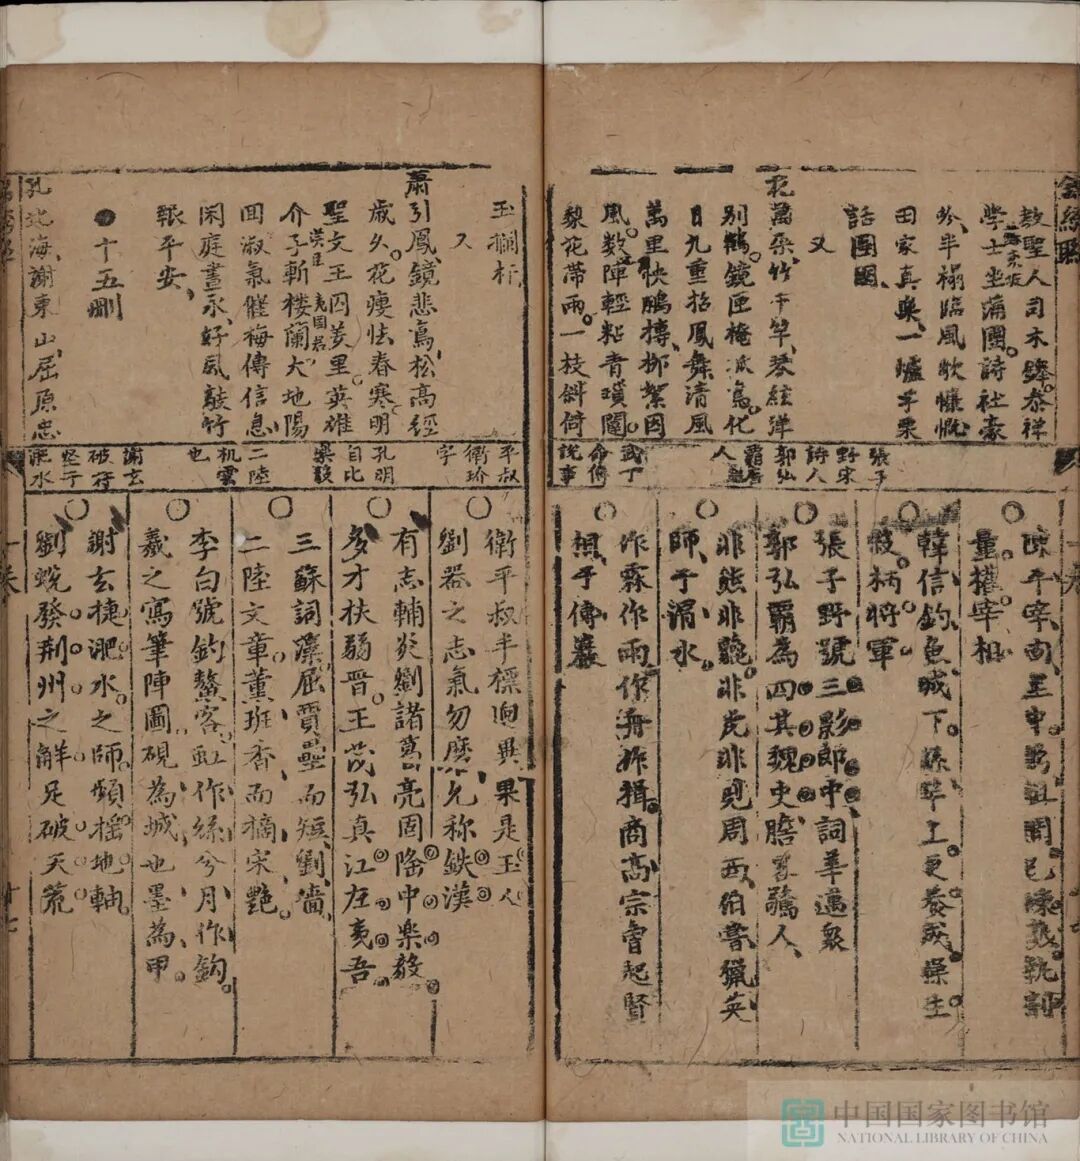 教聖人司木鐸泰祥
學士坐蒲團詩社豪
吟半榻臨風歌慷慨
田家真樂一爐芋栗
話團圞
又
花萬朵竹千竿琴絃彈
別鶴鏡匣掩孤鸞化
日九重招鳳舞清風
萬里快鵬摶柳絮因
風數陣輕粘青瑣闥
黎花帶雨一枝斜倚
玉欄杆
又
蕭引鳳鏡悲鸞松高經
歲久花瘦怯春寒明
聖文王囚羑里英雄
介子斬樓蘭大地陽
回淑氣催梅傳信息
閑庭晝永好風敲竹
報平安
十五刪
孔北海謝東山屈原忠
張子
野宋
詩人
郭弘
人
武丁
命傅
說事
平叔
衛玠
字
孔明
自比
樂毅
二陸
机雲
也
謝玄
破苻
堅于
淝水
量權宰相
韓信釣魚城下
披柄將軍
張子野號三影郎中詞華邁眾
郭弘霸為四其魏史膽喪驚人
非熊非羆非虎非兕周西伯嘗獵英
師于渭水
作霖作雨作舟作楫商高宗曾起賢
相于傅巖
衛平叔半標興異果是玉人
劉器之志氣勿磨允稱鉄漢
有志輔炎劉諸葛亮固隆中樂毅
多才扶弱晋王茂弘真江左夷吾
三蘇詞藻屈賈壘而短劉墻
二陸文章薰班香而摘宋艷
李白號釣鰲客虹作絲兮月作鈎
羲之寫筆陣圖硯為城也墨為甲
謝玄捷淝水之師頻搖地軸
劉蛻發荆州之解足破天荒
中国国家图书馆
NATIONAL LIBRARY OF CHINA